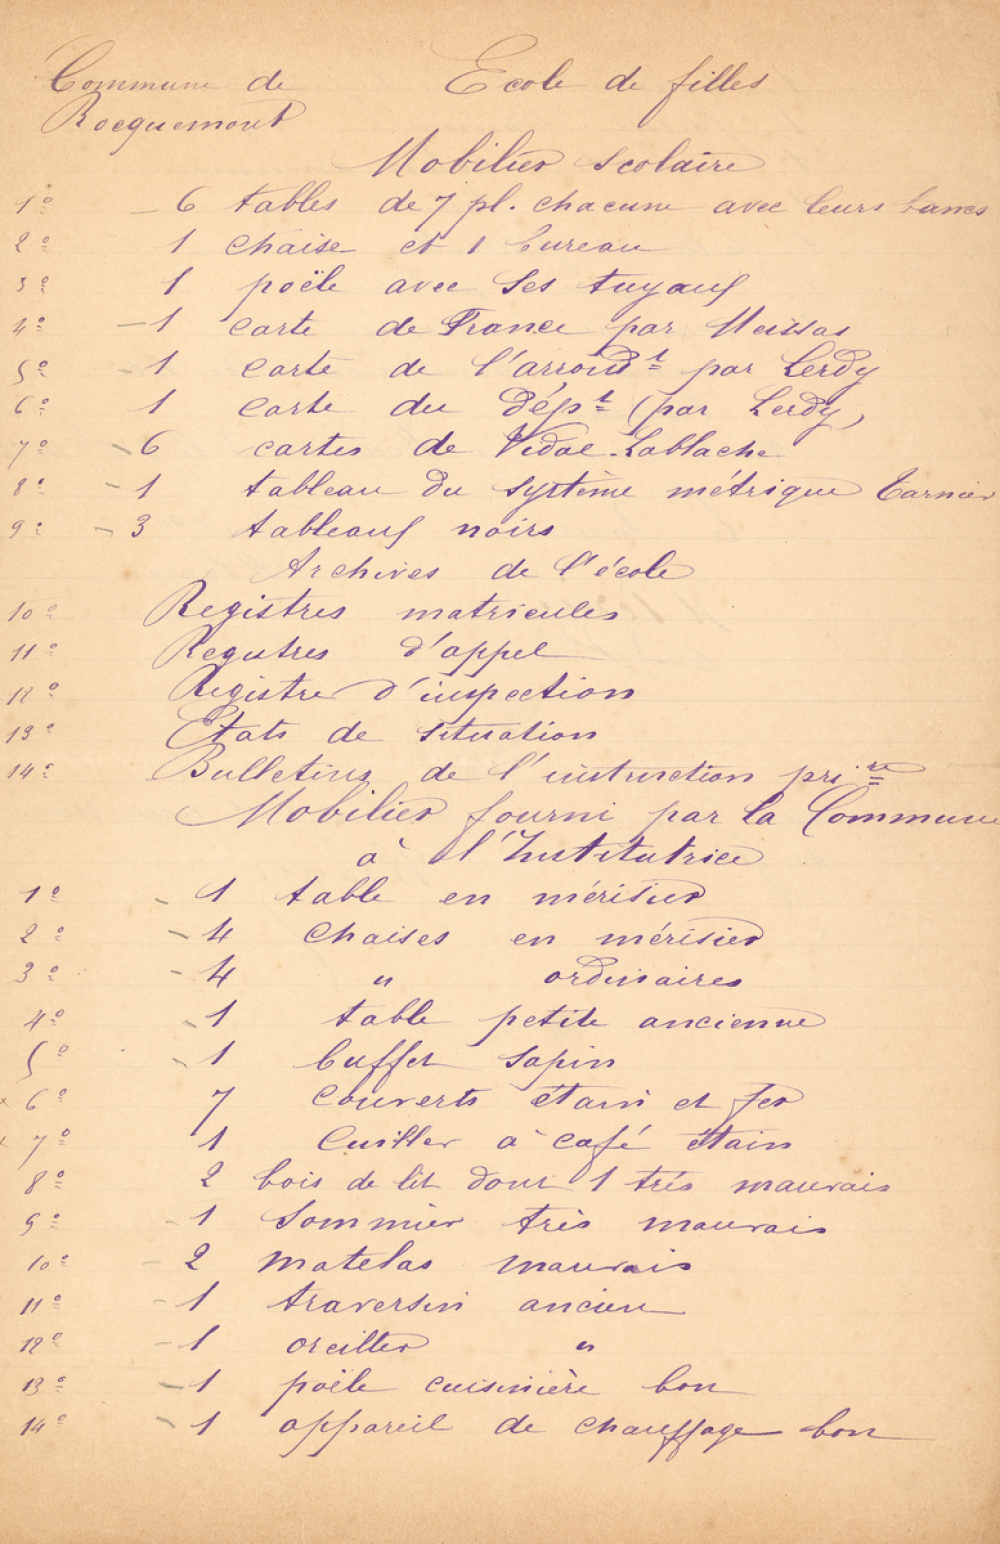 Commune de
Rocquemont
Ecole de filles
Mobilier scolaire
1º 6 tables de 7 pl. chacune avec leurs bancs
2º 1 chaise et 1 bureau
3º 1 poële avec ses tuyaux
4º 1 carte de France par Meissas
5º 1 carte de l'arrondt par Lerdy
6º 1 carte du Dépt (par Lerdy)
7º 6 cartes de Vidal-Lablache
8º 1 tableau du système métrique Tarnier
9º 3 tableaux noirs
Archives de l'école
10º Registres matricules
11º Registres d'appel
12º Registre d'inspection
13º Etats de situation
14º Bulletins de l'instruction prire
Mobilier fourni par la Commune
à l'Institutrice
1º 1 table en mérisier
2º 4 chaises en mérisier
3º 4 " ordinaires
4º 1 table petite ancienne
5º 1 buffet sapin
6º 7 couverts étain et fer
7º 1 cuiller à café étain
8º 2 bois de lit dont 1 très mauvais
9º 1 sommier très mauvais
10º 2 matelas mauvais
11º 1 traversin ancien
12º 1 oreiller "
13º 1 poële cuisinière bon
14º 1 appareil de chauffage bon